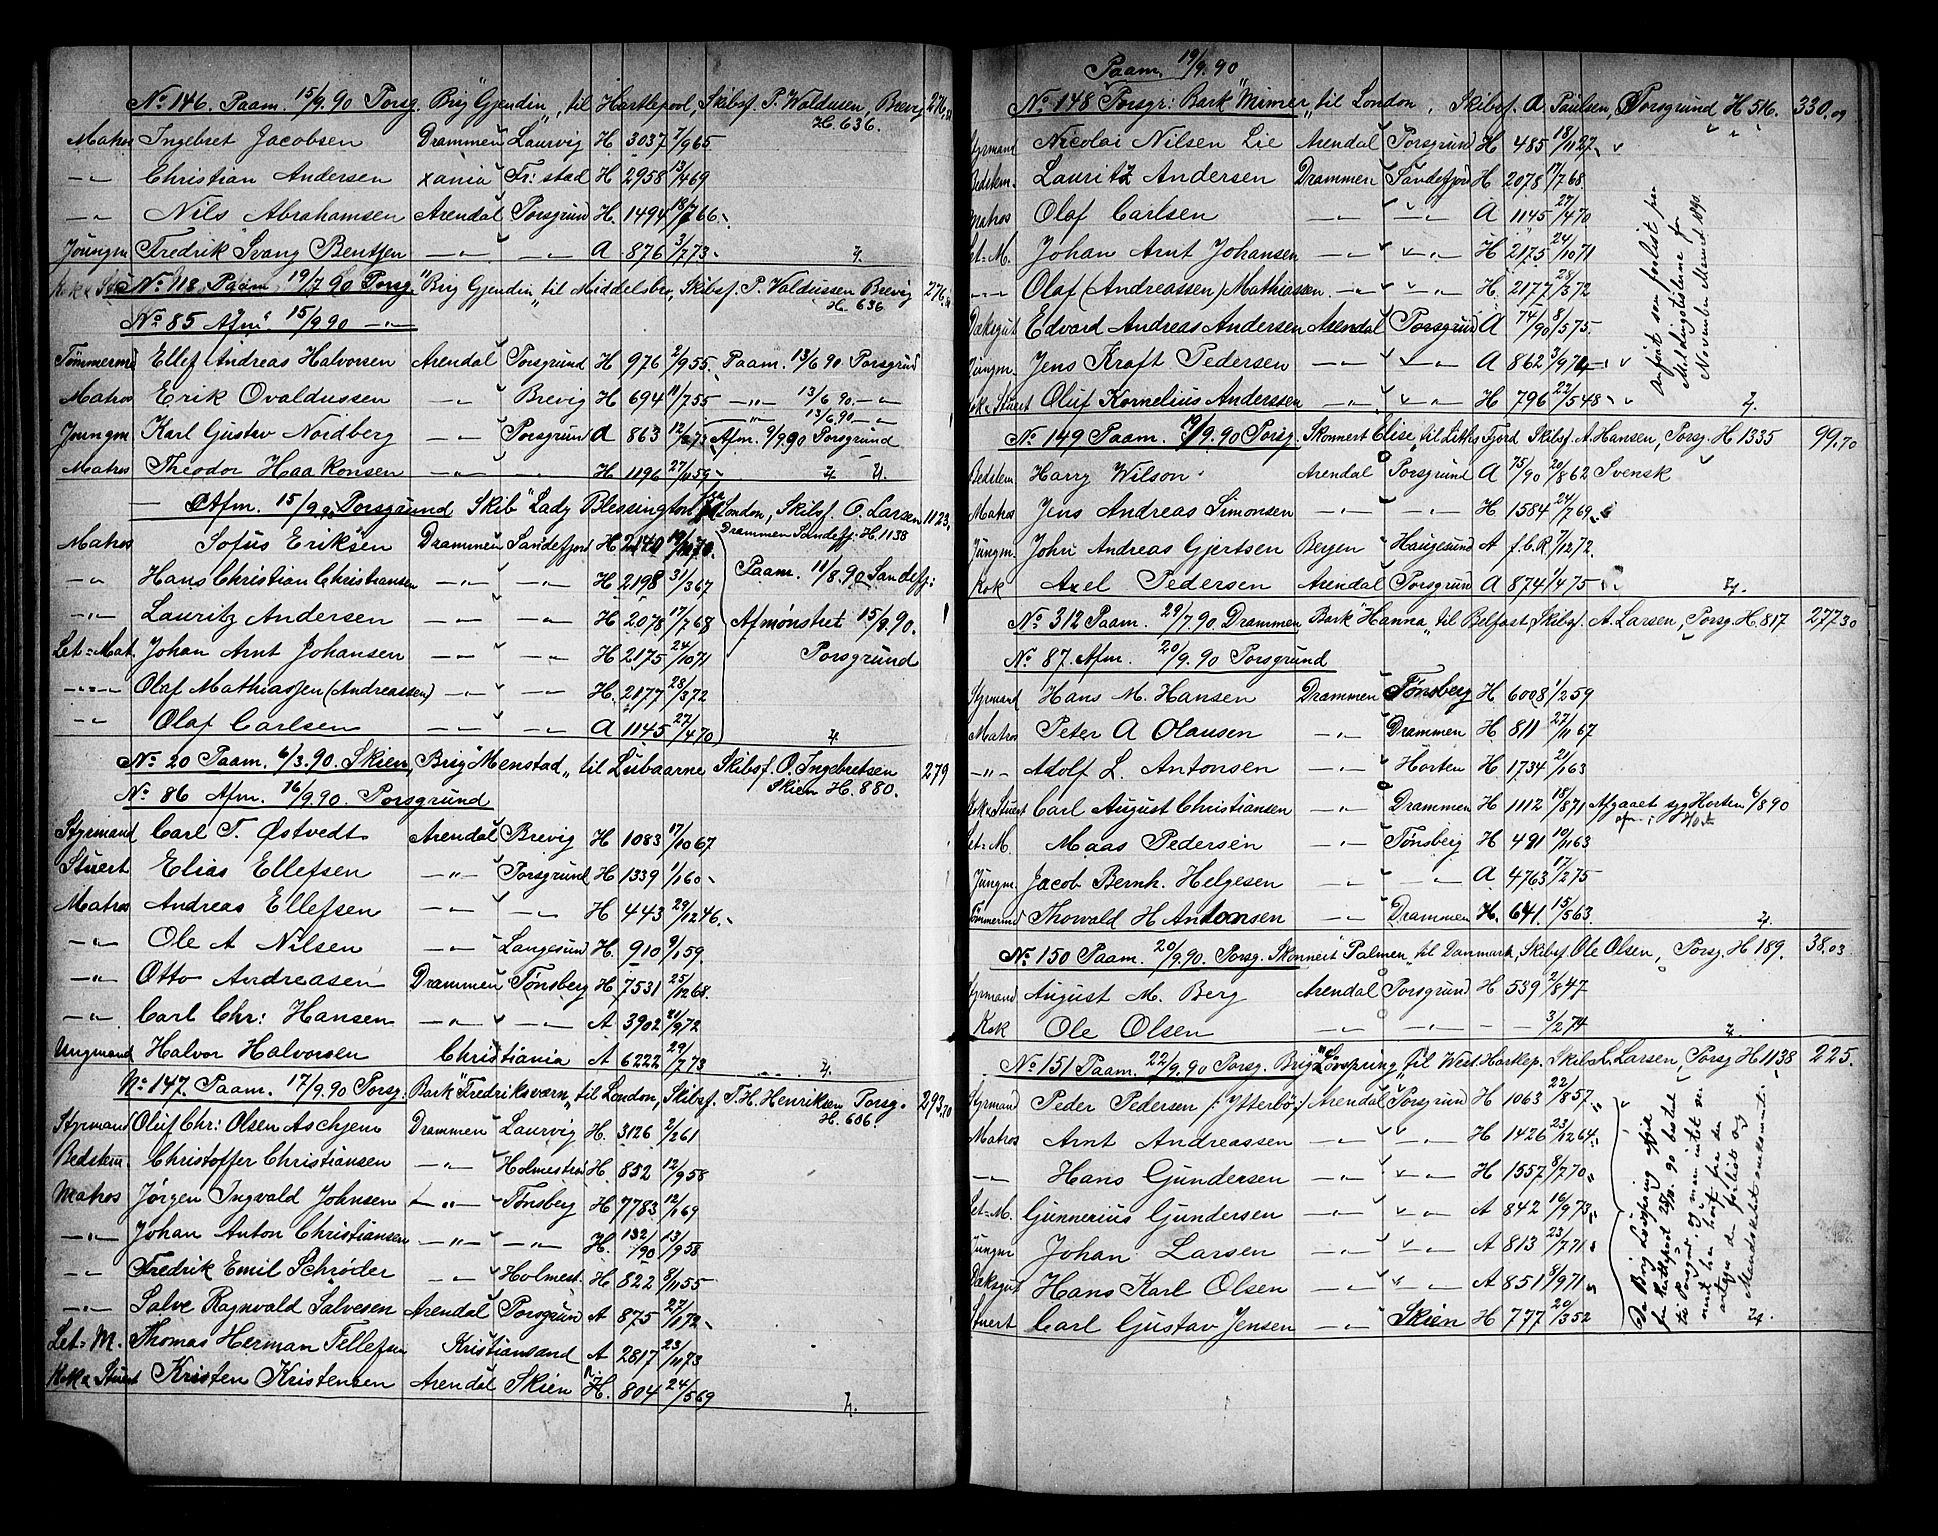 No 146. Paam. 15/9.90 Porsg. Brig "Gjendin" til Hartlepool, Skibsf. P. Waldusen, Brevig 276,
H. 636.
Matros Ingebret Jacobsen Drammen Laurvig H 3037 7/9 65
—"— Christian Andersen xania Fr: stad H 2958 13/4 69
—"— Nils Abrahamsen Arendal Porsgrund H. 1494 18/7 66
Joungm Fredrik Svang Bentzen —"— " A 876 3/7 73
No 118 Paam 19/7 90 Porsg. "Brig Gjendin" til Middelsbro, Skibsf. P. Valdussen Brevig 276
H. 636
No 85 Afm. 15/9 90 —"—
Tømmermd Ellef Andreas Halvorsen Arendal Porsgrund H 976 2/9 55 Paam. 13/6 90 Porsgrund
Matros Erik Ovaldussen —"— Brevig H 694 11/7 55 —"— 13/6 90 —"—
13/6 90 —"—
Joungm Karl Gustav Nordberg —"— Porsgrund A 863 12/2 73 Afm. 9/9 90 Porsgrund
Matros Theodor Haakonsen —"— —"— H 1196 27/11 59
— Afm. 15/9.90 Porsgrund Skib "Lady Blessington" fra London, Skibsf. O. Larsen 1123
Drammen Sandefj. H. 1138
Matros Sofus Eriksen Drammen Sandefjord H 2140 19/10 70
—"— Hans Christian Christiansen —"— —"— H 2198 31/3 67 Paam. 11/8.90 Sandefj:
—"— Lauritz Andersen —"— —"— H 2078 17/7 68 Afmønstret 15/9.90.
Let=Mat. Johan Arnt Johansen —"— —"— H 2175 24/10 71 Porsgrund
—"— Olaf Mathiassen (Andreassen) —"— —"— H. 2177 28/3 72
—"— Olaf Carlsen —"— —"— A 1145 27/4 70
No 20 Paam. 6/3.90. Skien, Brig "Menstad" til Lubaarne Skibsf. O. Ingebretsen 279
Skien H. 880.
No 86 Afm. 16/9.90. Porsgrund
Styrmand Carl T. Østvedt Arendal Brevig H 1083 17/10 67
Stuert Elias Ellefsen —"— Porsgrund H 1339 1/1 60
Matros Andreas Ellefsen —"— —"— H 443 29/12 46
—"— Ole A Nilsen —"— Langesund H. 910 9/1 59.
—"— Otto Andreasen Drammen Tønsberg H 7531 25/12 68.
—"— Carl Chr: Hansen —"— —"— A 3902 20/9 72
Ungmand Halvor Halvorsen Christiania A 6222 29/7 73
No 147. Paam. 17/9.90 Porsg. Bark "Fredriksværn" til London, Skibsf. T. H. Henriksen Porsg. 293,70
H. 606.
Styrmand Oluf Chr: Olsen Aschjem Drammen Laurvig H. 3126 2/2 61
Bedstem. Christoffer Christiansen —"— Holmestrd H. 852 12/9 58
Matros Jørgen Ingvald Johnsen —"— Tønsberg H 7783 12/1 69
—"— Johan Anton Christiansen —"— —"— H. 132/90 13/9 58
—"— Fredrik Emil Schrøder —"— Holmest. H 822 8/11 55
—"— Salve Ragnvald Salvesen Arendal Porsgrun A 875 27/1 72
Let=M. Thomas Herman Tellefsen Kristiansand A 2817 23/11 73
Kok & Stuert Kristen Kristensen Arendal Skien H. 804 24/5 69
Paam. 19/9.90
No 148 Porsgr: Bark "Mimer" til London, Skibsf. A. Paulsen, Porsgrund H 516. 330.09
Styrmand Nicolai Nilsen Lie Arendal Porsgrund H 485 18/11 27
Bedstem. Lauritz Andersen Drammen Sandefjord H 2078 17/7 68.
Matros Olaf Carlsen —"— —"— A 1145 27/4 70
Let=M. Johan Arnt Johansen —"— —"— H 2175 24/10 71
—"— Olaf (Andreassen) Mathiassen —"— —"— H 2177 28/3 72
Dæksgut Edvard Andreas Andersen Arendal Porsgrund A 74/90 8/5 75
Jüngm. Jens Kraft Pedersen —"— —"— A 862 3/9 74
Kok & Stuert Oluf Kornelius Anderssen —"— —"— H 796 22/5 48
Anført som forlist paa
Meldingslisterne for
November Maaned 1890.
No 149 Paam. 19/9.90 Porsg. Skonnert Elise til Liths Fjord Skibsf. A. Hansen, Porsg. H 1335 99.70
Bedstem Harry Wilson Arendal Porsgrund A 75/90 20/8 62 Svensk
Matros Jens Andreas Simonsen —"— —"— H 1584 24/7 69
Jüngm. John Andreas Gjertsen Bergen Haugesund A f.C.R 7/12 72.
Kok Axel Pedersen Arendal Porsgrund A 874 1/4 75
No 312 Paam. 29/7.90. Drammen Bark "Hanna" til Belfast, Skibsf. A. Larsen, Porsg. H. 817 277.30
No 87. Afm. 20/9.90 Porsgrund
Styrmand Hans M. Hansen Drammen Tønsberg H 6008 1/2 59
Matros Peter A Olausen —"— Drammen H 811 27/11 67
—"— Adolf L. Antonsen —"— Horten H 1734 21/1 63
Kok & Stuert Carl August Christiansen —"— Drammen H 1112 18/8 71 Afgaaet syg Horten 6/8 90
Let=M. Maas Pedersen —"— Tønsberg H 491 10/11 63
Jüngm. Jacob Bernh. Helgesen —"— —"— A 4763 17/2 75
Tømmermd Thorvald H Antonsen —"— Drammen H. 641. 15/5 63.
No 150 Paam. 20/9.90. Porsg. Skonnert "Palmen" til Danmark, Skibsf. Ole Olsen, Porsg. H 189. 38.03
Styrmand August M. Berg Arendal Porsgrund H 539 2/8 47
Kok Ole Olsen —"— —"— — — 3/2 74
No 151 Paam. 22/9.90 Porsg. Brig "Løvspring" til West Hartlep. Skibsf. L. Larsen, Porsg. H 1138 225.
Styrmand Peder Pedersen (: Ytterbø:) Arendal Porsgrund H 1063 22/8 57
Matros Arnt Andreassen —"— —"— H 1426 23/12 64
—"— Hans Gundersen —"— —"— H 1557 8/7 70
Let=M. Gunnerius Gundersen —"— —"— A 842 16/9 73
Jüngm Johan Larsen —"— —"— A 813 23/7 71
Dæksgut Hans Karl Olsen —"— —"— A 851 8/9 71
Stuert Carl Gustav Jensen —"— Skien H 777 20/3 52
Da Brig Løvspring afgik
fra Hartlepool 25/10. 90 bestemt
til Porsgrund, og man intet
har hørt fra den
antages den forlist og
Mandskabet omkommet.